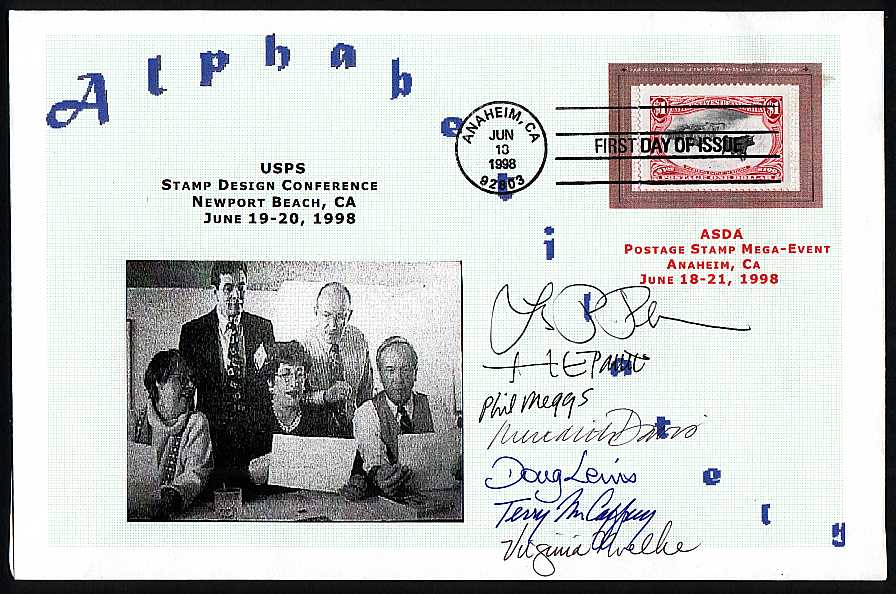 Alphabetilately
ANAHEIM, CA
JUN
13
1998
92803
FIRST DAY OF ISSUE
$1
POSTAGE ONE DOLLAR
USPS
STAMP DESIGN CONFERENCE
NEWPORT BEACH, CA
JUNE 19-20, 1998
ASDA
POSTAGE STAMP MEGA-EVENT
ANAHEIM, CA
JUNE 18-21, 1998
Phil Meggs
Meredith Davis
Doug Lewis
Terry McCaffrey
Virginia Noelke